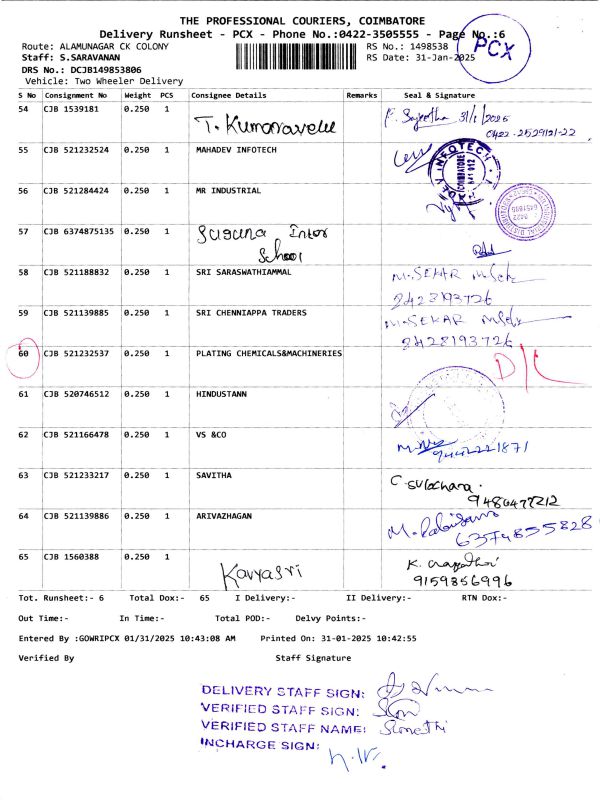 THE PROFESSIONAL COURIERS, COIMBATORE
Delivery Runsheet - PCX - Phone No.:0422-3505555 - Page No.:6
PCX
Route: ALAMUNAGAR CK COLONY RS No.: 1498538
Staff: S.SARAVANAN RS Date: 31-Jan-2025
DRS No.: DCJB149853806
Vehicle: Two Wheeler Delivery
S No Consignment No Weight PCS Consignee Details Remarks Seal & Signature
54 CJB 1539181 0.250 1 T. Kumaravelu 31/1/2025
0422-2529121-22
55 CJB 521232524 0.250 1 MAHADEV INFOTECH
56 CJB 521284424 0.250 1 MR INDUSTRIAL
57 CJB 6374875135 0.250 1 Suguna Inter
School
58 CJB 521188832 0.250 1 SRI SARASWATHIAMMAL M.SEKAR
9428193726
59 CJB 521139885 0.250 1 SRI CHENNIAPPA TRADERS M.SEKAR
9428193726
60 CJB 521232537 0.250 1 PLATING CHEMICALS&MACHINERIES D/L
61 CJB 520746512 0.250 1 HINDUSTANN
62 CJB 521166478 0.250 1 VS &CO
9442221871
63 CJB 521233217 0.250 1 SAVITHA C. Sulochana.
9486477212
64 CJB 521139886 0.250 1 ARIVAZHAGAN
6374855828
65 CJB 1560388 0.250 1 Kavyasri K.
9159856996
Tot. Runsheet:- 6 Total Dox:- 65 I Delivery:- II Delivery:- RTN Dox:-
Out Time:- In Time:- Total POD:- Delvy Points:-
Entered By :GOWRIPCX 01/31/2025 10:43:08 AM Printed On: 31-01-2025 10:42:55
Verified By Staff Signature
DELIVERY STAFF SIGN:
VERIFIED STAFF SIGN:
VERIFIED STAFF NAME:
INCHARGE SIGN: